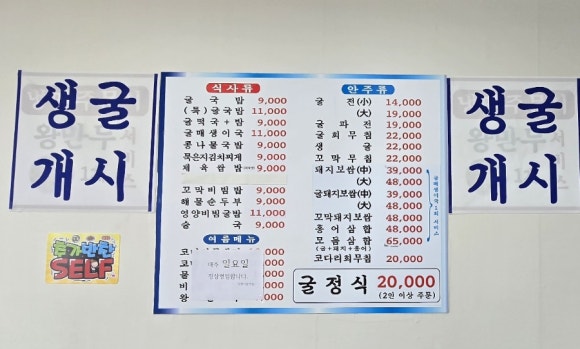 생굴
개시
식사류
굴국밥 9,000
(특)굴국밥 11,000
굴떡국+밥 9,000
굴매생이국 11,000
콩나물국밥 9,000
묵은지김치찌개 9,000
제육쌈밥 9,000
꼬막비빔밥 9,000
해물순두부 9,000
영양비빔굴밥 11,000
술국 9,000
여름메뉴
매주 일요일
정상영업합니다.
9,000
9,000
9,000
안주류
굴전(小) 14,000
(大) 19,000
굴파전 19,000
굴회무침 22,000
생굴 22,000
꼬막무침 22,000
돼지보쌈(中) 39,000
(大) 48,000
굴돼지보쌈(中) 39,000
(大) 48,000
꼬막돼지보쌈 48,000
홍어삼합 48,000
모듬삼합 65,000
(굴+돼지+홍어)
코다리회무침 20,000
굴정식 20,000
(2인 이상 주문)
생굴
개시
추가반찬
SELF